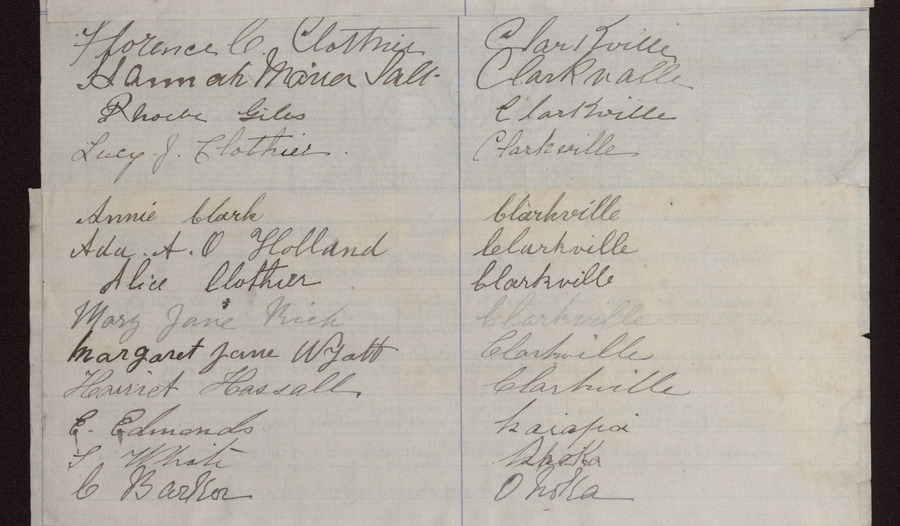 Florence C. Clothier Clarkville
Hannah Maria Salt Clarkvalle
Phoebe Giles Clarkville
Lucy J. Clothier. Clarkville
Annie Clark Clarkville
Ada. A. O Holland Clarkville
Alice Clothier Clarkville
Mary Jane Rich Clarkville
Margaret Jane Wyatt Clarkville
Harriet Hassall Clarkville
E. Edmonds Kaiapoi
White Ohoka
C Barker Ohoka